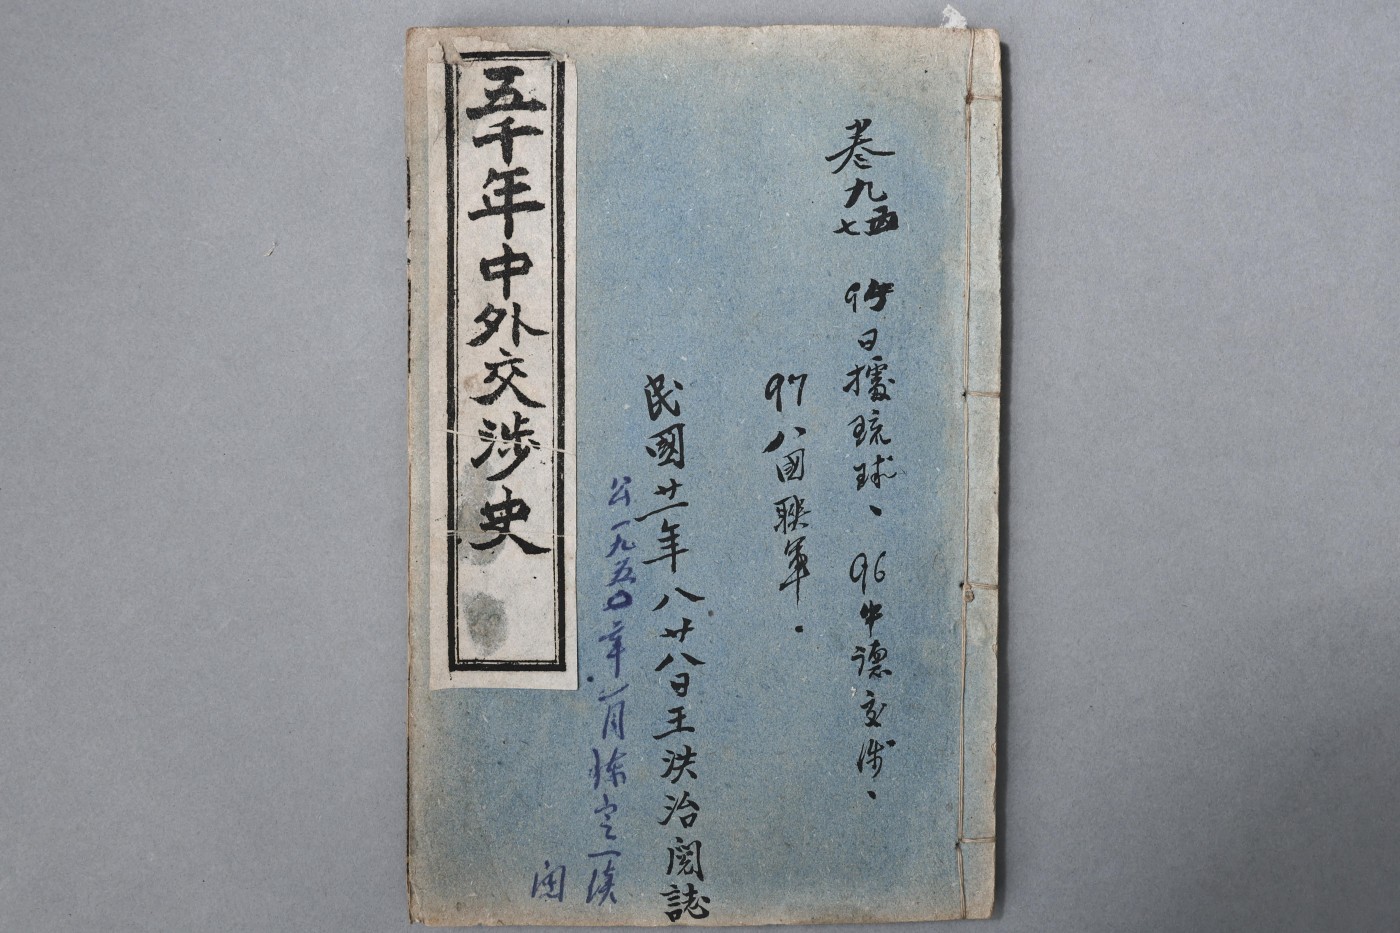 卷九五
七
95日據琉球、96中德交涉、
97八國聯軍.
民國廿一年八廿八日王洪治閱誌
公一九五〇年八月陈定一
閱
五千年中外交涉史